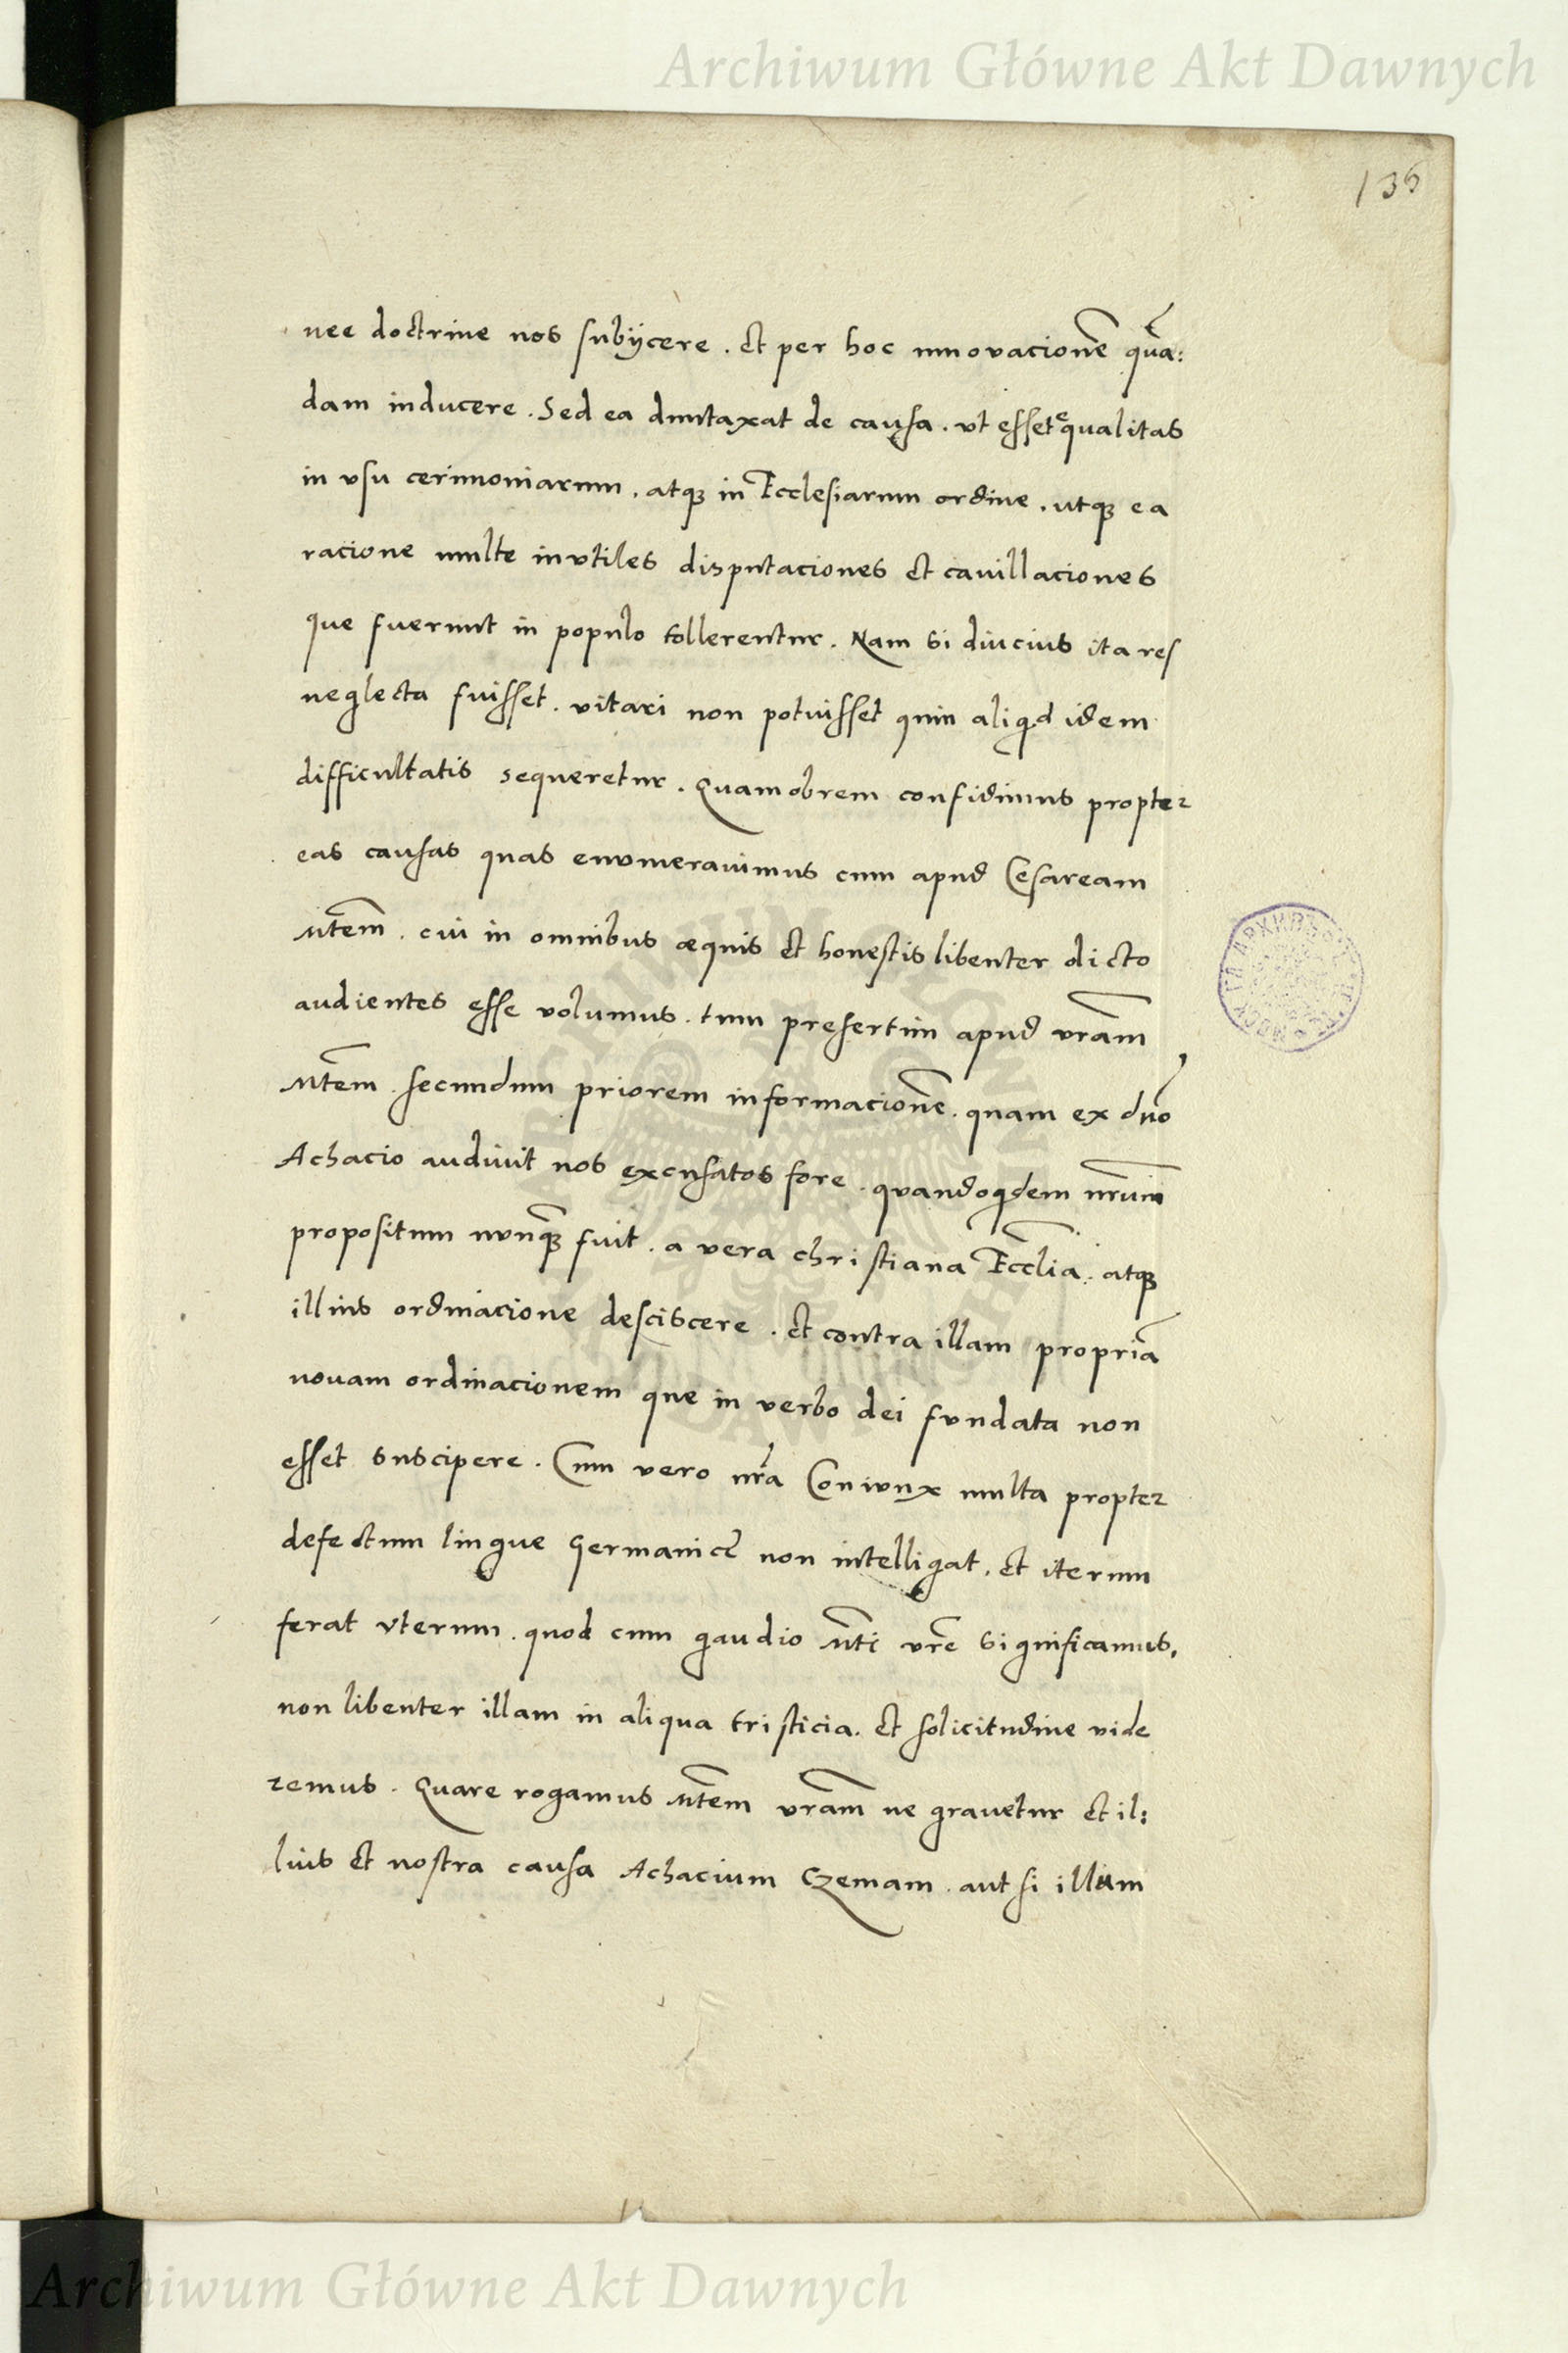 Archiwum Główne Akt Dawnych
136
nee doctrine nos subijcere . et per hoc innovacionē quā:
dam inducere . Sed ea duntaxat de causa . vt esset ęqualitas
in vsu cerimoniarum . atqȝ in Ecclesiarum ordine . utqȝ ea
racione multe invtiles disputaciones et cauillaciones
que fuerunt in populo tollerentur . Nam si diucius ita res
neglecta fuisset . vitari non potuisset quin aliqd idem
difficultatis sequeretur . Quamobrem confidimus propter
eas causas quas enumerauimus cum apud Cesaream
Mtem̄ . cui in omnibus æquis et honestis libenter dicto
audientes esse volumus . tum presertim apud vrām
Mtēm . secundum priorem informacionē . quam ex dño
Achacio audiuit nos excusatos fore . quandoqdem nrūm
propositum nunq̄ȝ fuit . a vera christiana Eccl̄ia . atqȝ
illius ordinacione desciscere . et contra illam propriā
nouam ordinacionem que in verbo dei fundata non
esset suscipere . Cum vero nrā Coniunx multa propter
defectum lingue Germanicę non intelligat . et iterum
ferat vterum . quod cum gaudio Mti vrē significamus,
non libenter illam in aliqua tristicia . et solicitudine vide
remus . Quare rogamus Mtēm vrām ne grauetur et il:
lius et nostra causa Achacium Czemam . aut si illum
Archiwum Główne Akt Dawnych